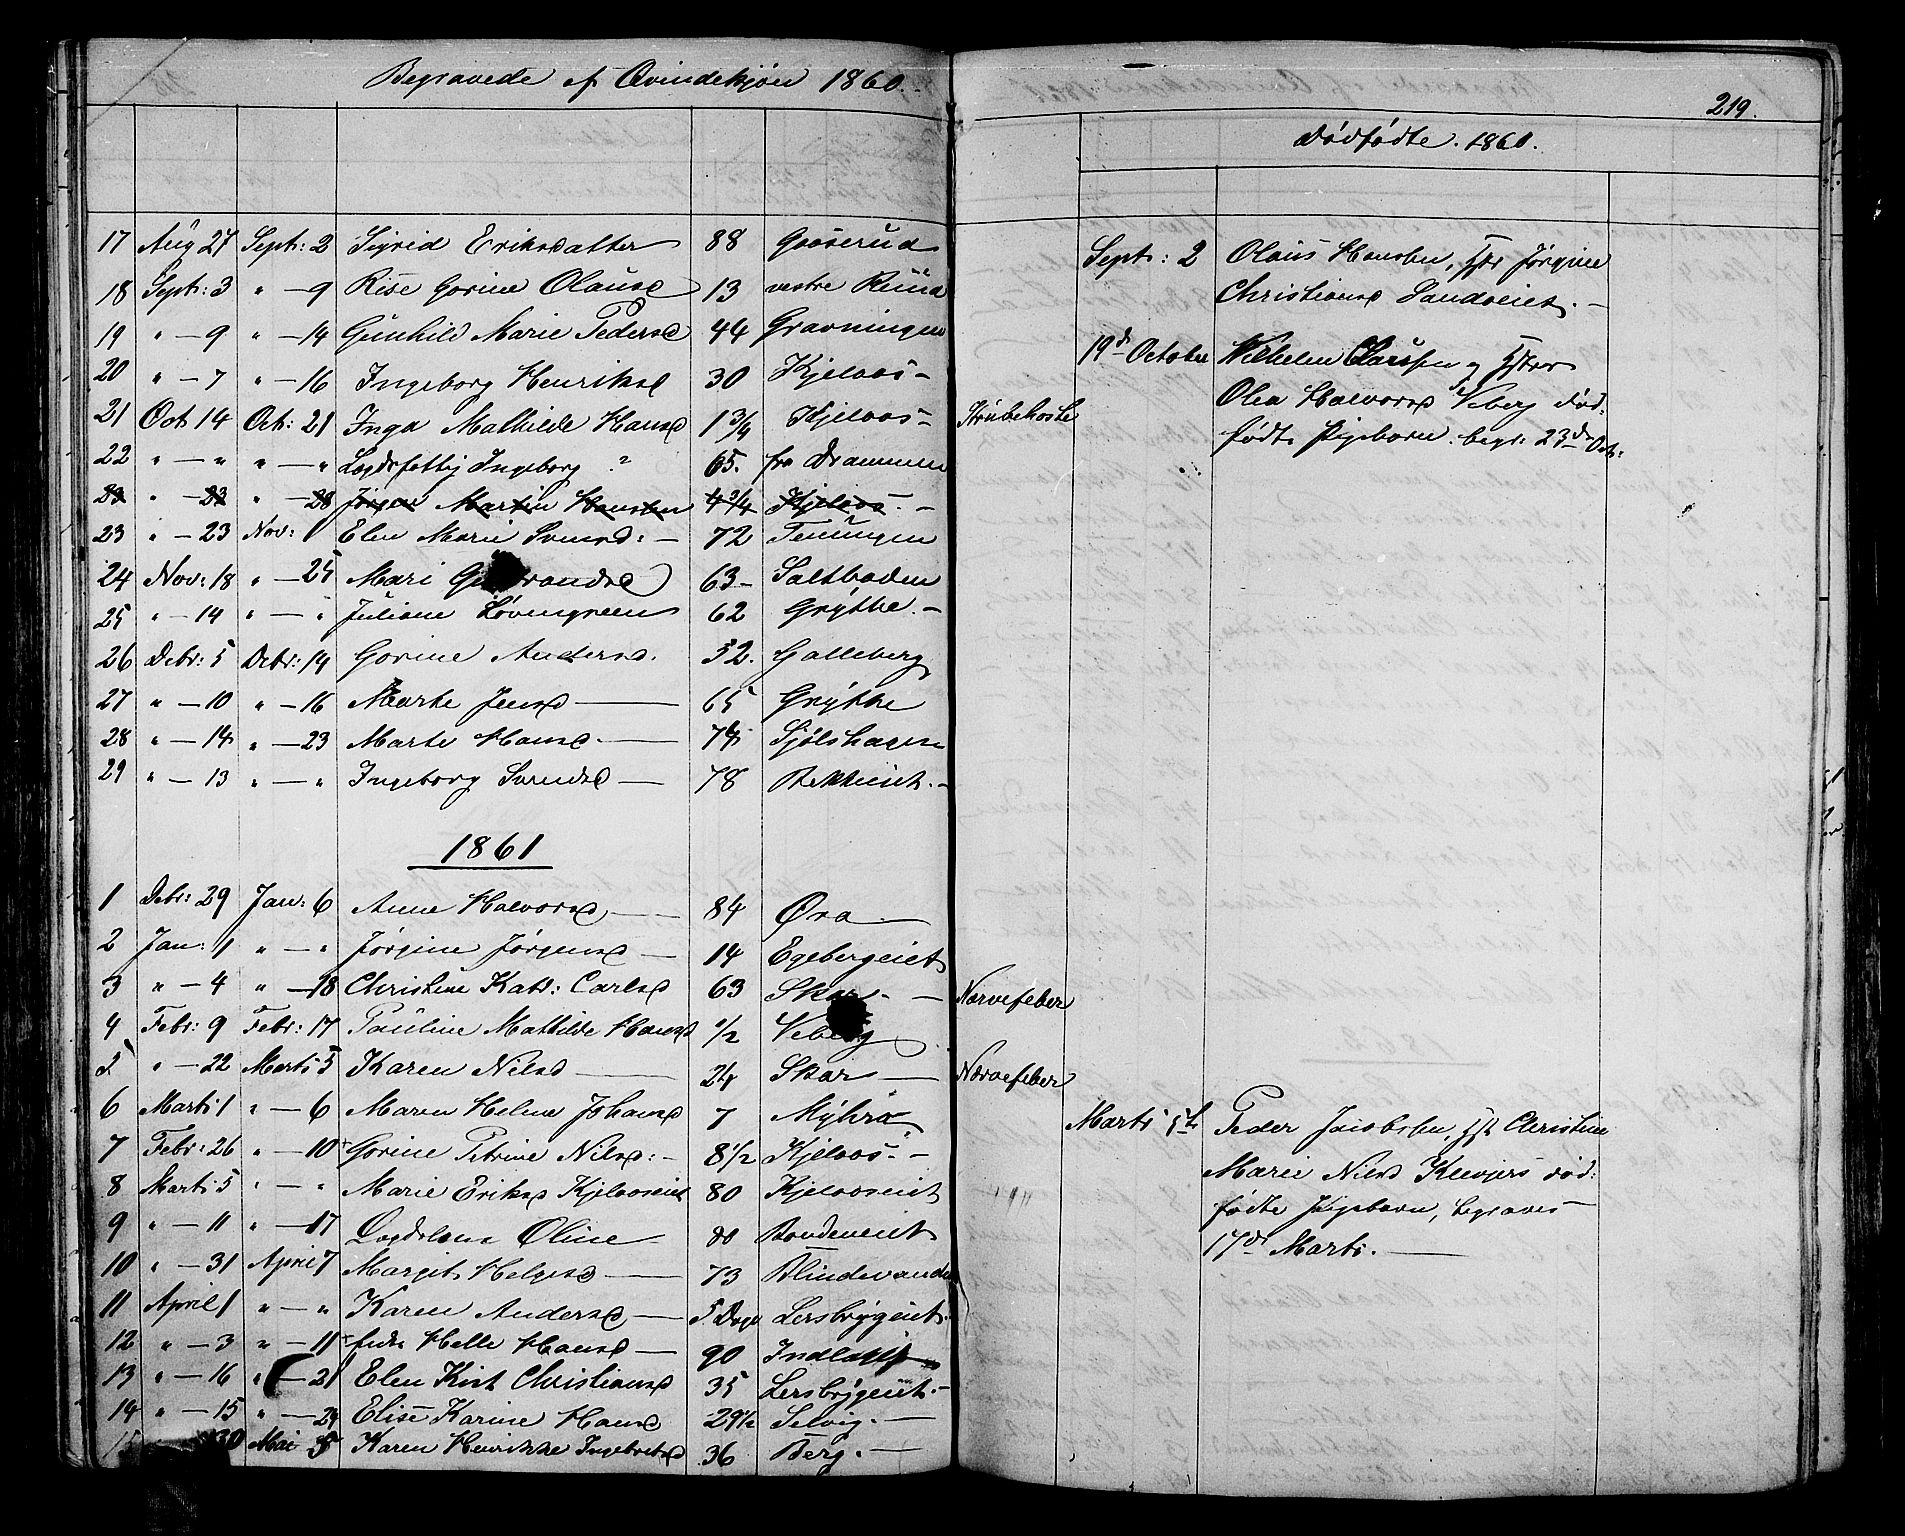 Begravede af Qvindekjøn 1860.
219.
Dødfødte. 1860.
17 Aug 27 Sept: 2 Sigrid Eriksdatter 88 Gooserud
18 Sept: 3 " — 9 Rise Gorine Olausd 13 vestre Ruud
19 " — 9 " — 14 Gunhild Marie Pedersd 44 Gravningen
20 " — 7 " — 16 Ingeborg Henriksd 30 Kjelaas —
21 Oct 14 Oct: 21 Inga Mathilde Hansd 1 3/4 Kjelaas — Strubehoste
22 " — " " — " Logdsfattig Ingeborg ? 65. fra Drammen
23 " — 23 " — 28 Jørgen Martin Hansen 4 3/4 Kjelaas. —
23 " — 23 Nov: Elen Marie Svensd: — 72 Teningen
24 Nov: 18 " — 25 Mari Gulbrandsd 63 — Saltboden
25 " — 14 " — " Juliane Løvengreen 62 Grythe. —
26 Debr: 5 Debr: 14 Gorine Andersd. 52. Galleberg
27 " — 10 " — 16 Marte Jensd — 65 Grythe
28 " — 14 " — 23 Marte Hansd. — 74 Sjølshagen
29 " — 13 " — " Ingeborg Svendsd — 78 Bekkeiet. —
1861
1 Debr: 29 Jan: 6 Anne Halvorsd — 84 Øra —
2 Jan: 1 " — " Jørgine Jørgensd — 14 Egebergeiet
3 " — 4 " — 18 Christine Kath: Carlsd 63 Skar — Nervefeber
4 Febr: 9 Febr: 17 Pauline Mathilde Hansd 1/2 Veberg
5 " — 22 Marts 5 Karen Nilsd — 24 Skar — Nervefeber
6 Marts 1 " — 6 Maren Helene Johansd 7 Myhra
7 Febr: 26 " — 10 Gorine Petrine Nilsd: — 8 1/2 Kjelaas —
8 Marts 5 " — " Marie Eriksd Kjelaaseiet 80 Kjelaaseiet
9 " — 11 " — 17 Logdslem Oline 80 Bondeneiet
10 " — 31 April 7 Margit Helgesd — 73 Blindevande
11 April 1 " — " Karen Andersd — 5 Dage Lersbrygeiet
12 " — 3 " — 11 Helle Hansd — 90
13 " — 16 " — 21 Elen Kirst Christiansd 35 Lersbrygeiet. —
14 " — 15 " — 24 Elise Karine Hansd 29 1/2 Selvig. —
15 30 Mai 5 Karen Henrikke Ingebretsd 36 Berg. —
Sept: 2 Olaus Hansen, Hstr Jørgine
Christiansd Sandveiet. —
19d October Wilhelm Clausen og Hstr
Olea Halvorsd Veberg død-
født Pigebarn. begr: 23de Oct:
Marts 5t Peder Jacobsen, Hst Christine
Marie Nilsd Klevjers død:
fødte Pigebarn, begraves
17de Marts. —